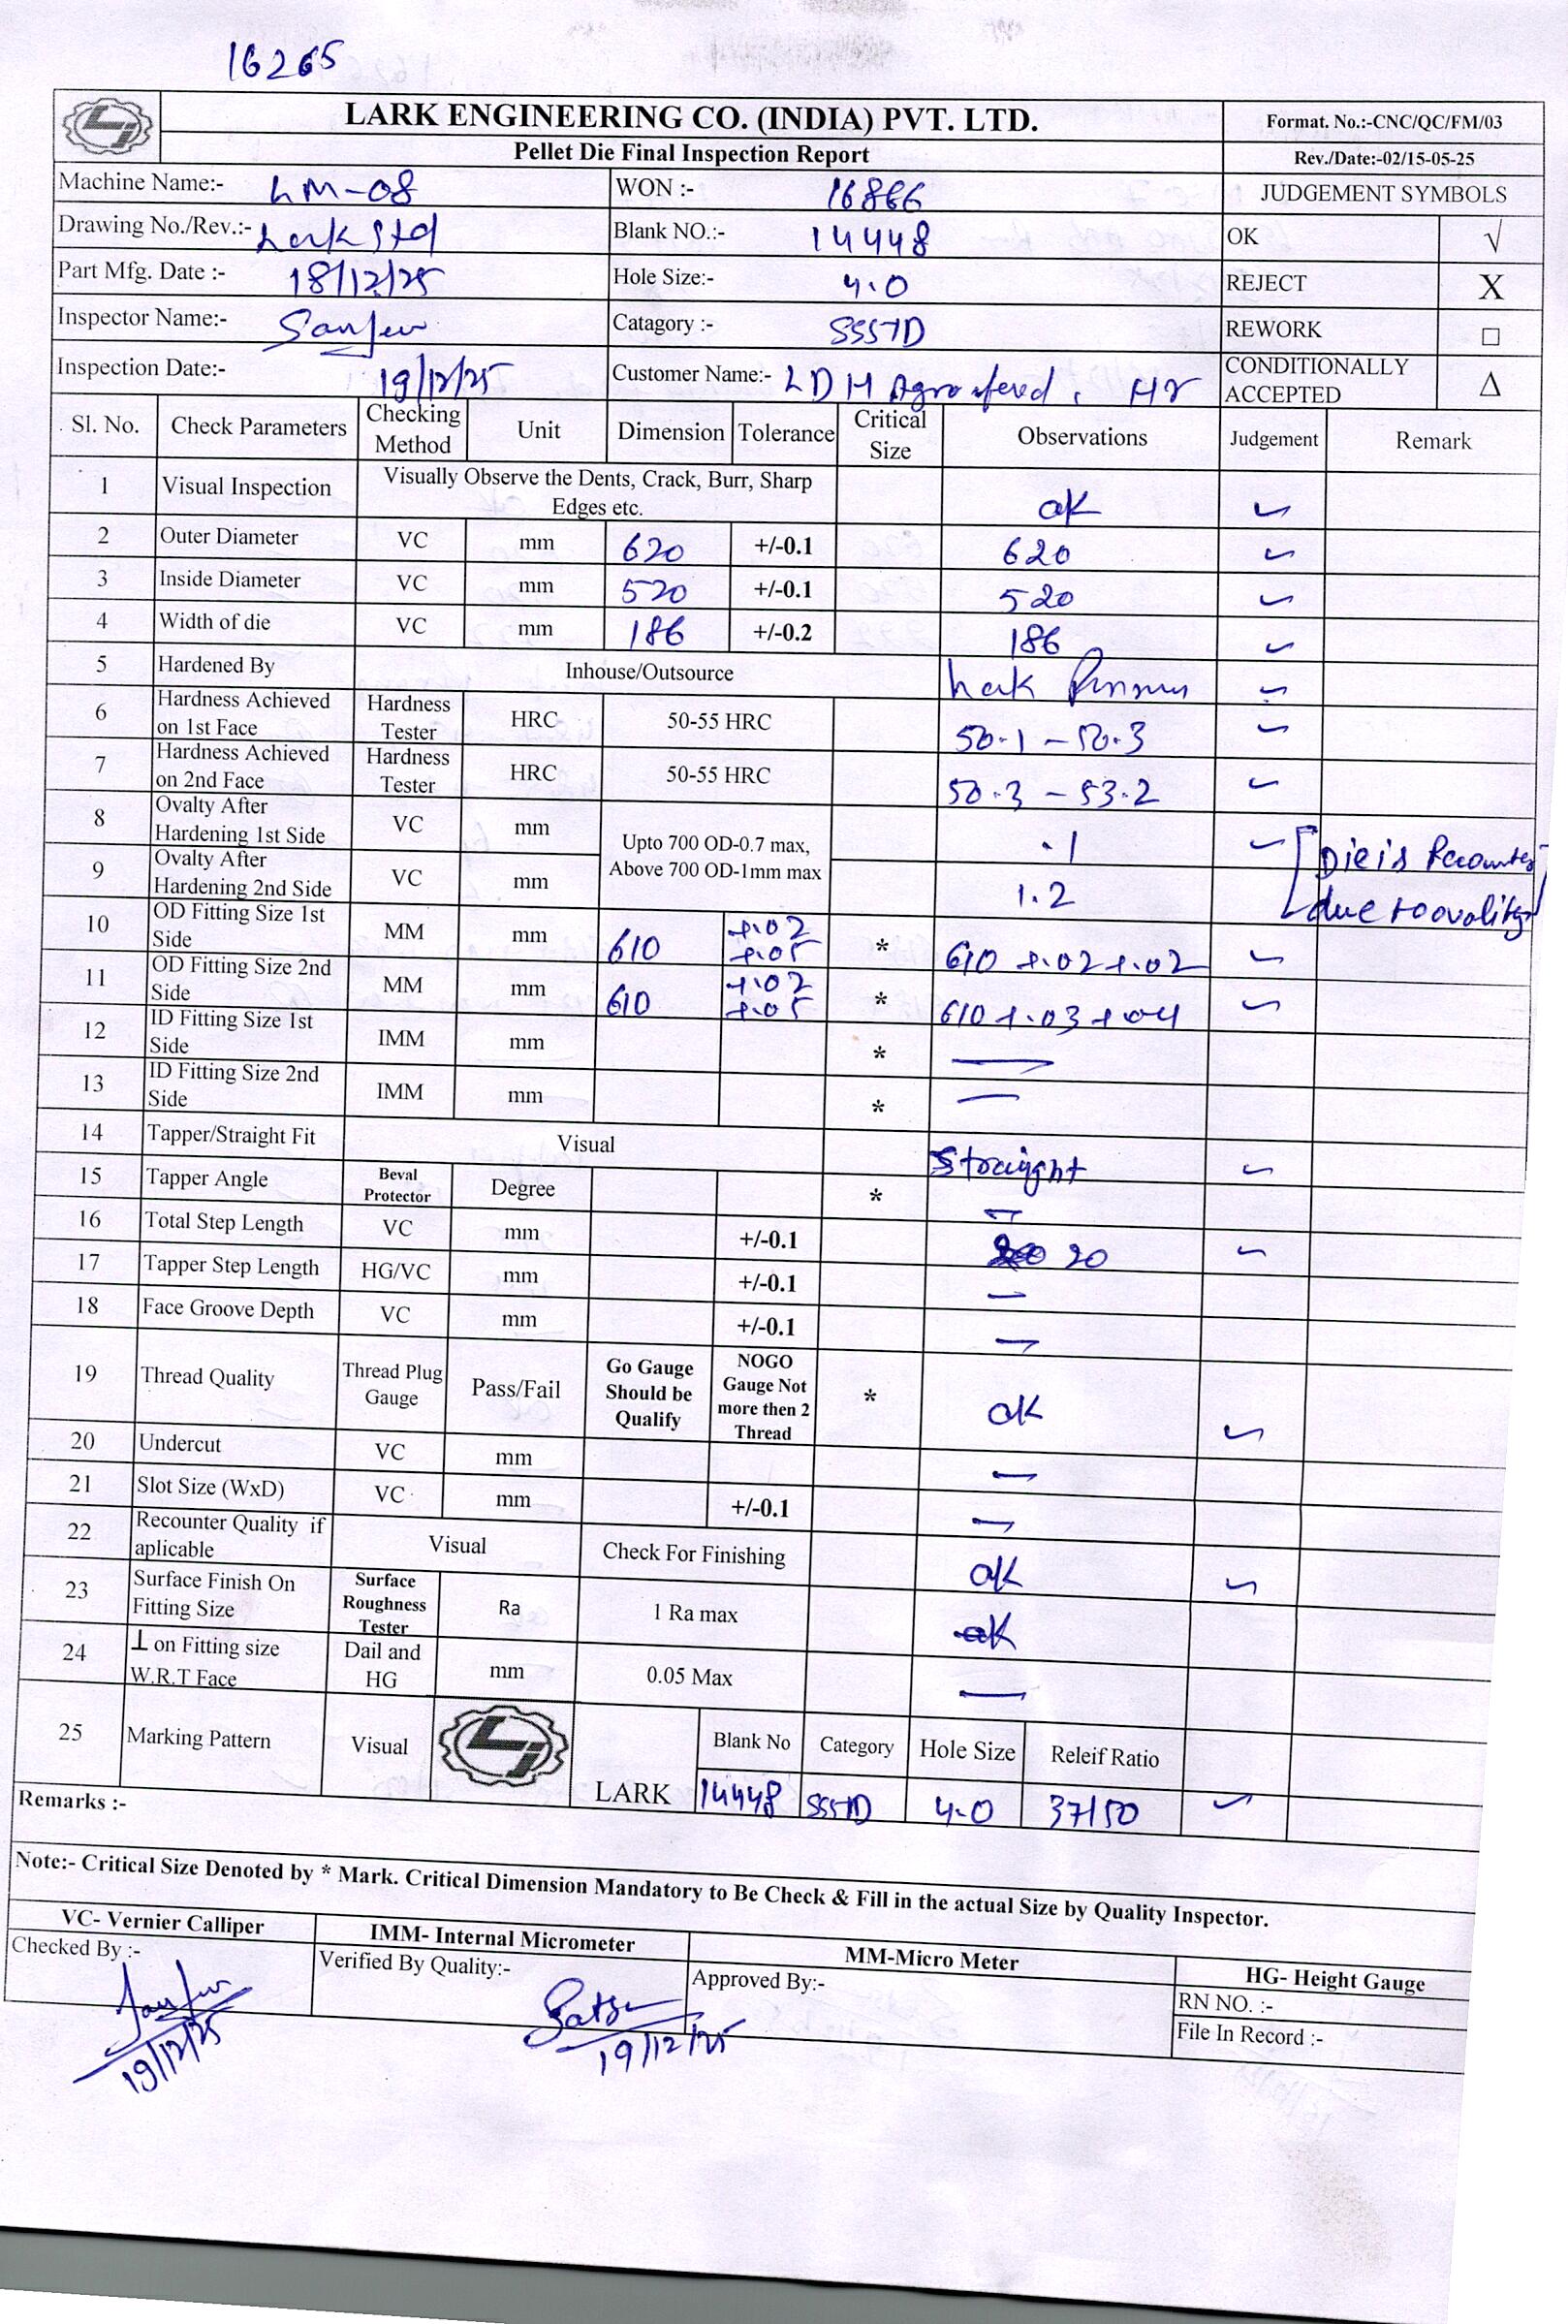 16265
LARK ENGINEERING CO. (INDIA) PVT. LTD.
Format. No.:-CNC/QC/FM/03
Pellet Die Final Inspection Report
Rev./Date:-02/15-05-25
Machine Name:- LM-08 WON :- 16866 JUDGEMENT SYMBOLS
Drawing No./Rev.:- Lark Std Blank NO.:- 14448 OK √
Part Mfg. Date :- 18/12/25 Hole Size:- 4.0 REJECT X
Inspector Name:- Sanjeev Catagory :- SSSTD REWORK □
Inspection Date:- 19/12/25 Customer Name:- LDH Agro feed, Hr CONDITIONALLY ACCEPTED Δ
Sl. No. Check Parameters Checking Method Unit Dimension Tolerance Critical Size Observations Judgement Remark
1 Visual Inspection Visually Observe the Dents, Crack, Burr, Sharp Edges etc. ok ✓
2 Outer Diameter VC mm 620 +/-0.1 620 ✓
3 Inside Diameter VC mm 520 +/-0.1 520 ✓
4 Width of die VC mm 186 +/-0.2 186 ✓
5 Hardened By Inhouse/Outsource Lark ✓
6 Hardness Achieved on 1st Face Hardness Tester HRC 50-55 HRC 50.1 - 50.3 ✓
7 Hardness Achieved on 2nd Face Hardness Tester HRC 50-55 HRC 50.3 - 53.2 ✓
8 Ovalty After Hardening 1st Side VC mm Upto 700 OD-0.7 max, Above 700 OD-1mm max .1 ✓ Die is Recounter
9 Ovalty After Hardening 2nd Side VC mm 1.2 due to ovality
10 OD Fitting Size 1st Side MM mm 610 +.02 +.05 * 610 +.02 +.02 ✓
11 OD Fitting Size 2nd Side MM mm 610 +.02 +.05 * 610 +.03 +.04 ✓
12 ID Fitting Size 1st Side IMM mm * —
13 ID Fitting Size 2nd Side IMM mm * —
14 Tapper/Straight Fit Visual Straight ✓
15 Tapper Angle Beval Protector Degree * —
16 Total Step Length VC mm +/-0.1 20 ✓
17 Tapper Step Length HG/VC mm +/-0.1 —
18 Face Groove Depth VC mm +/-0.1 —
19 Thread Quality Thread Plug Gauge Pass/Fail Go Gauge Should be Qualify NOGO Gauge Not more then 2 Thread * ok ✓
20 Undercut VC mm —
21 Slot Size (WxD) VC mm +/-0.1 —
22 Recounter Quality if aplicable Visual Check For Finishing ok ✓
23 Surface Finish On Fitting Size Surface Roughness Tester Ra 1 Ra max ok
24 ⊥ on Fitting size W.R.T Face Dail and HG mm 0.05 Max —
25 Marking Pattern Visual LARK Blank No Category Hole Size Releif Ratio
14448 SSSTD 4.0 37/50 ✓
Remarks :-
Note:- Critical Size Denoted by * Mark. Critical Dimension Mandatory to Be Check & Fill in the actual Size by Quality Inspector.
VC- Vernier Calliper IMM- Internal Micrometer MM-Micro Meter HG- Height Gauge
Checked By :- Sanjeev Verified By Quality:- Approved By:- RN NO. :-
19/12/25 19/12/25 File In Record :-